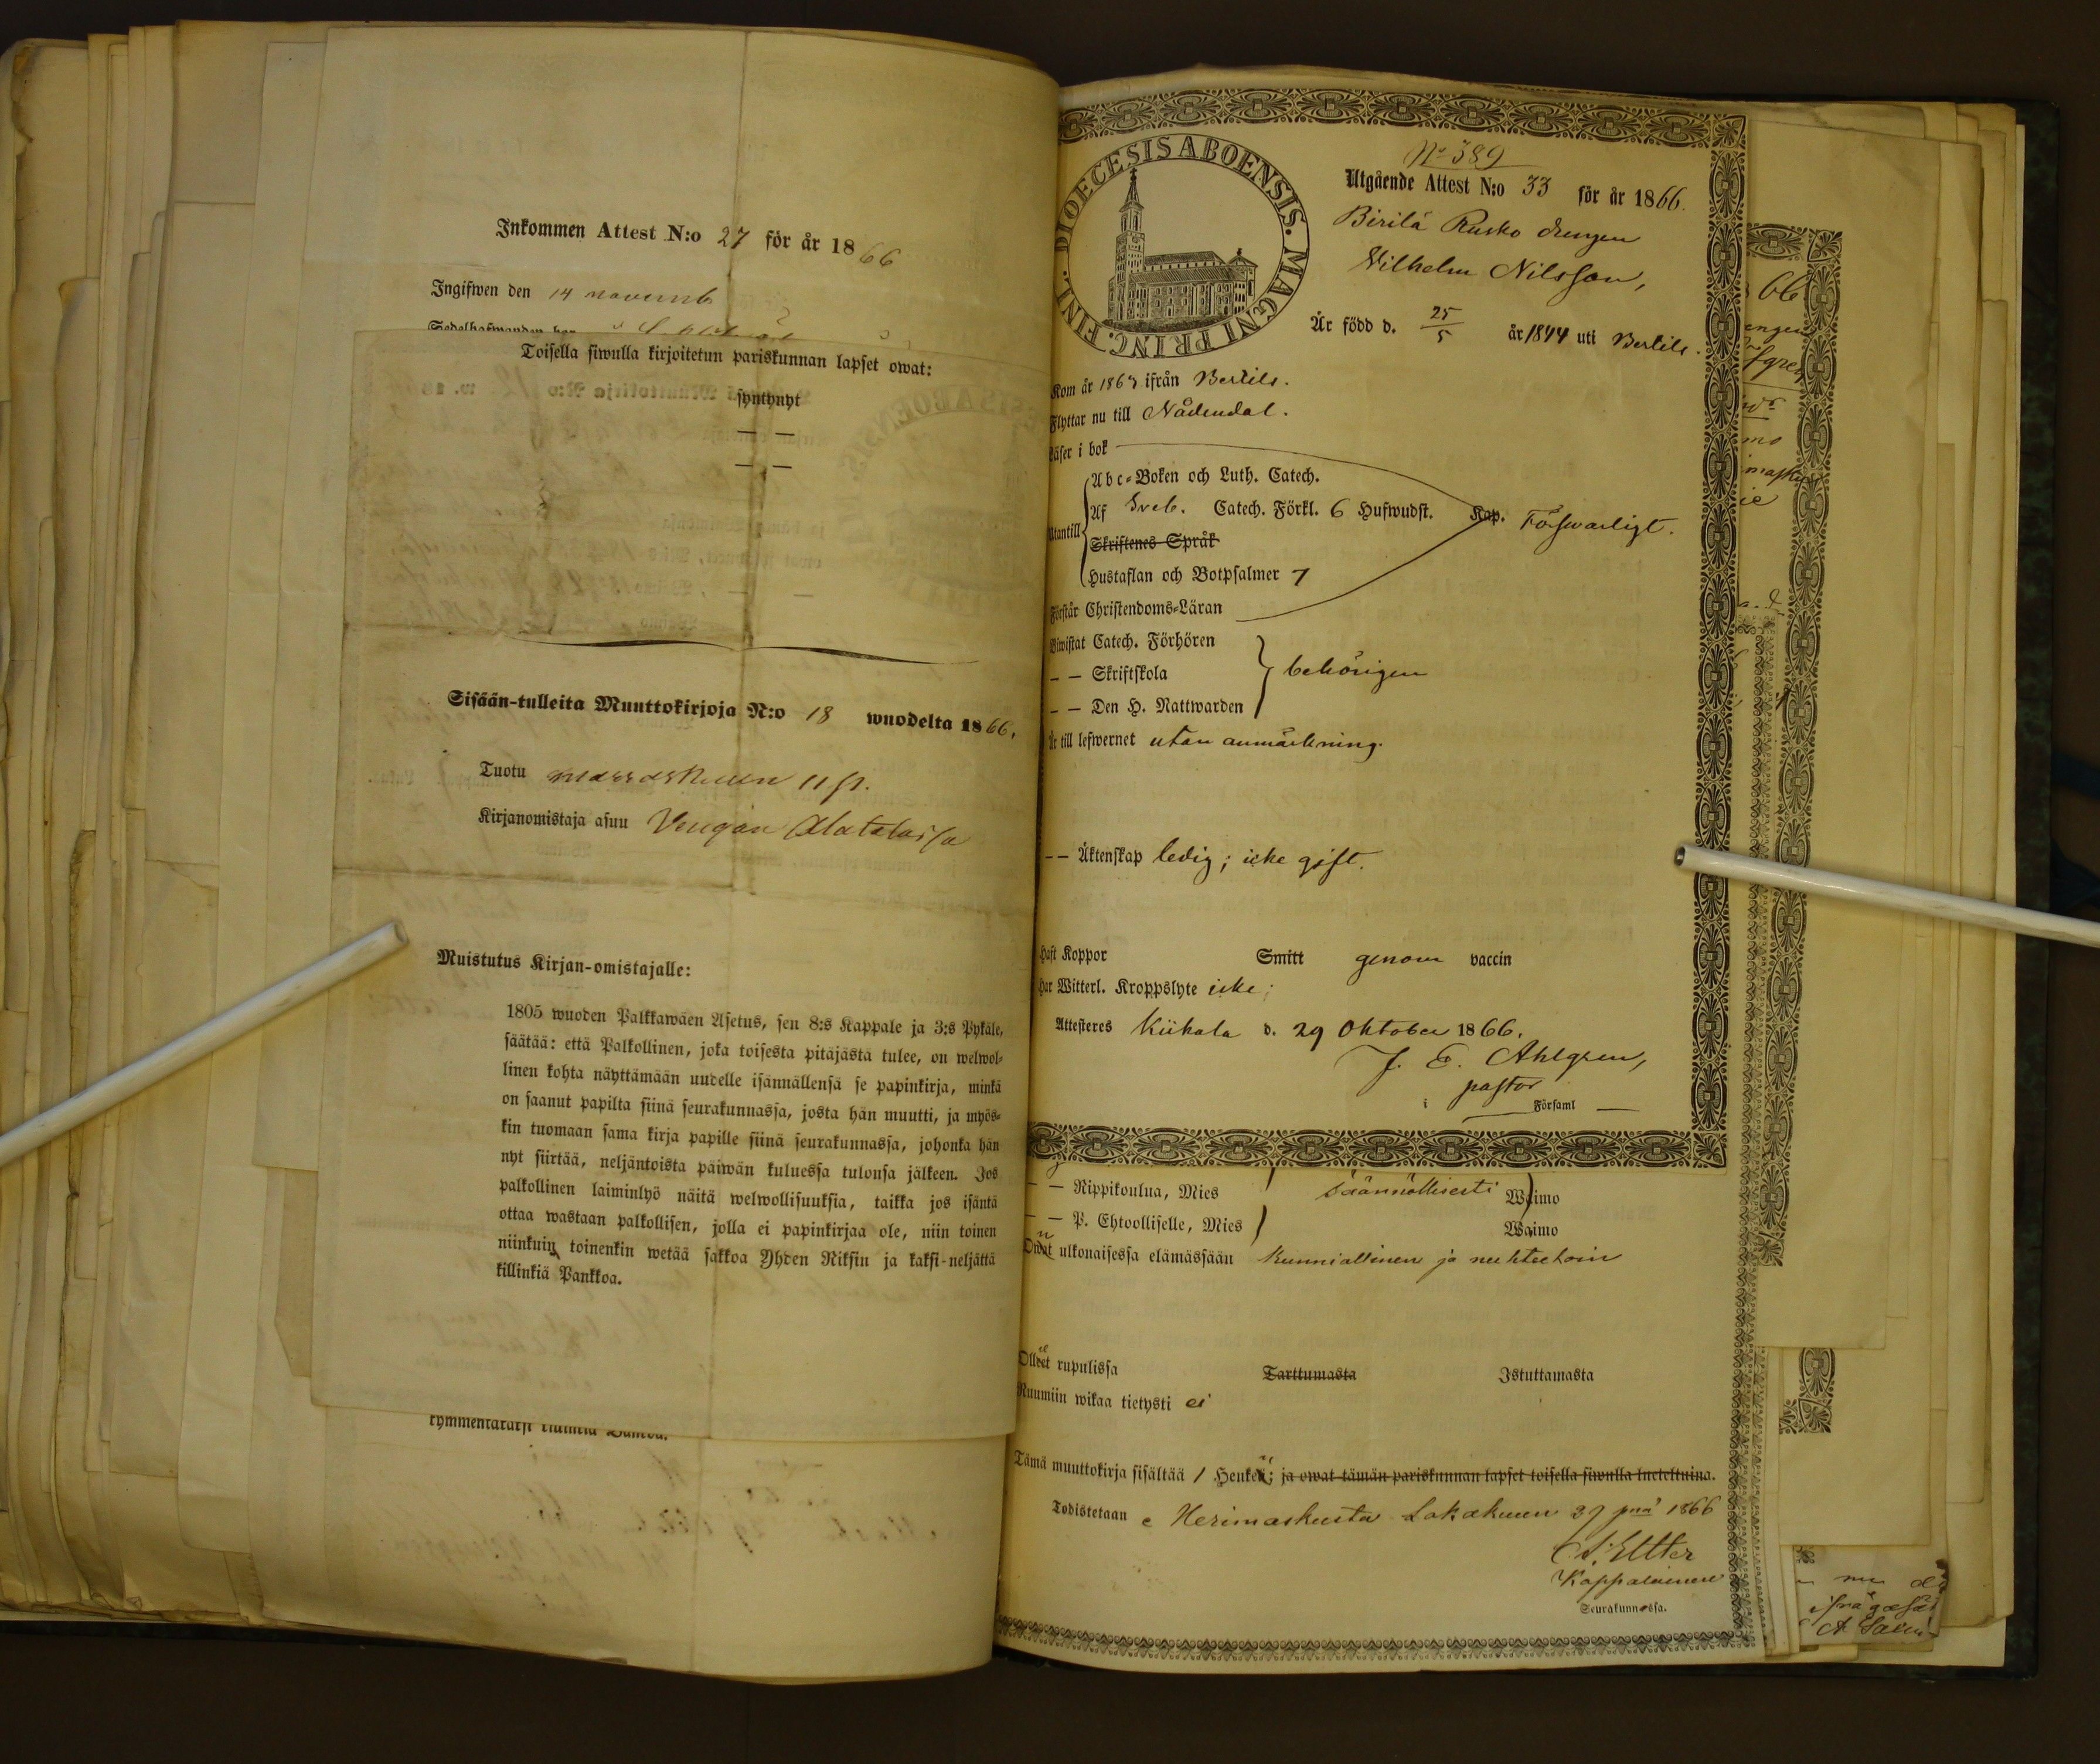 Inkommen Attest N:o 27 för år 1866
Ingifwen den 14 novemb
Sedelhafwanden bor
Toisella siwulla kirjoitetun pariskunnan lapset owat:
syntynyt
— —
— —
Sisään-tulleita Muuttokirjoja N:o 18 wuodelta 1866,
Tuotu marraskuun 11 p.
Kirjanomistaja asuu
Muistutus Kirjan-omistajalle:
1805 wuoden Palkkawäen Asetus, sen 8:s Kappale ja 3:s Pykäle,
säätää: että Palkollinen, joka toisesta pitäjästä tulee, on welwol-
linen kohta näyttämään uudelle isännällensä se papinkirja, minkä
on saanut papilta siinä seurakunnassa, josta hän muutti, ja myös-
kin tuomaan sama kirja papille siinä seurakunnassa, johonka hän
nyt siirtää, neljäntoista päiwän kuluessa tulonsa jälkeen. Jos
palkollinen laiminlyö näitä welwollisuuksia, taikka jos isäntä
ottaa wastaan palkollisen, jolla ei papinkirjaa ole, niin toinen
niinkuin toinenkin wetää sakkoa Yhden Riksin ja kaksi-neljättä
killinkiä Pankkoa.
FINL. DIOECESIS ABOENSIS. MAGNI PRINC.
No 389
Utgående Attest N:o 33 för år 1866.
Birilä Rusko drengen
Wilhelm Nilsson,
Är född d. 25/5 år 1844 uti Bertils.
Kom år 1865 ifrån Bertils.
Flyttar nu till Nådendal.
Läser i bok
Utantill
Abc-Boken och Luth. Catech.
Af Sveb. Catech. Förkl. 6 Hufwudst. Kap. Förswarligt.
Skriftenes Språk
Hustaflan och Botpsalmer 7
Förstår Christendoms-Läran
Biwistat Catech. Förhören
— — Skriftskola behörigen
— — Den H. Nattwarden
Är till lefwernet utan anmärkning.
— — Äktenskap ledig; icke gift.
Haft Koppor Smitt genom vaccin
Har Witterl. Kroppslyte icke;
Attesteres Kiikala d. 29 Oktober 1866.
J. E. Ahlgren,
pastor
i Församl
— — Rippikoulua, Mies säännöllisesti Waimo
— — P. Ehtoolliselle, Mies Waimo
Owat ulkonaisessa elämässään kunniallinen ja nuhteetoin
Olleet rupulissa Tarttumasta Istuttamasta
Ruumiin wikaa tietysti ei
Tämä muuttokirja sisältää 1 Henkeä; ja owat tämän pariskunnan lapset toisella siwulla lueteltuina.
Todistetaan Herimaskusta Lokakuun 29 pnä 1866
Kappalainen
Seurakunnassa.